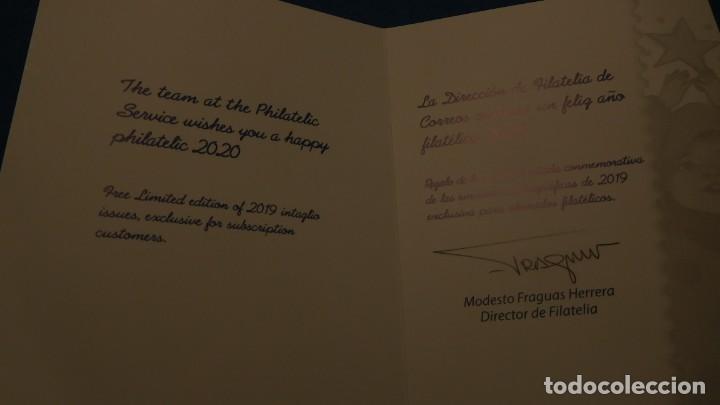 The team at the Philatelic
Service wishes you a happy
philatelic 2020
Free Limited edition of 2019 intaglio
issues, exclusive for subscription
customers.
La Dirección de Filatelia de
Correos un feliz año
filatélico
Regalo de conmemorativa
de las de 2019
exclusiva para abonados filatélicos.
Modesto Fraguas Herrera
Director de Filatelia
todocoleccion